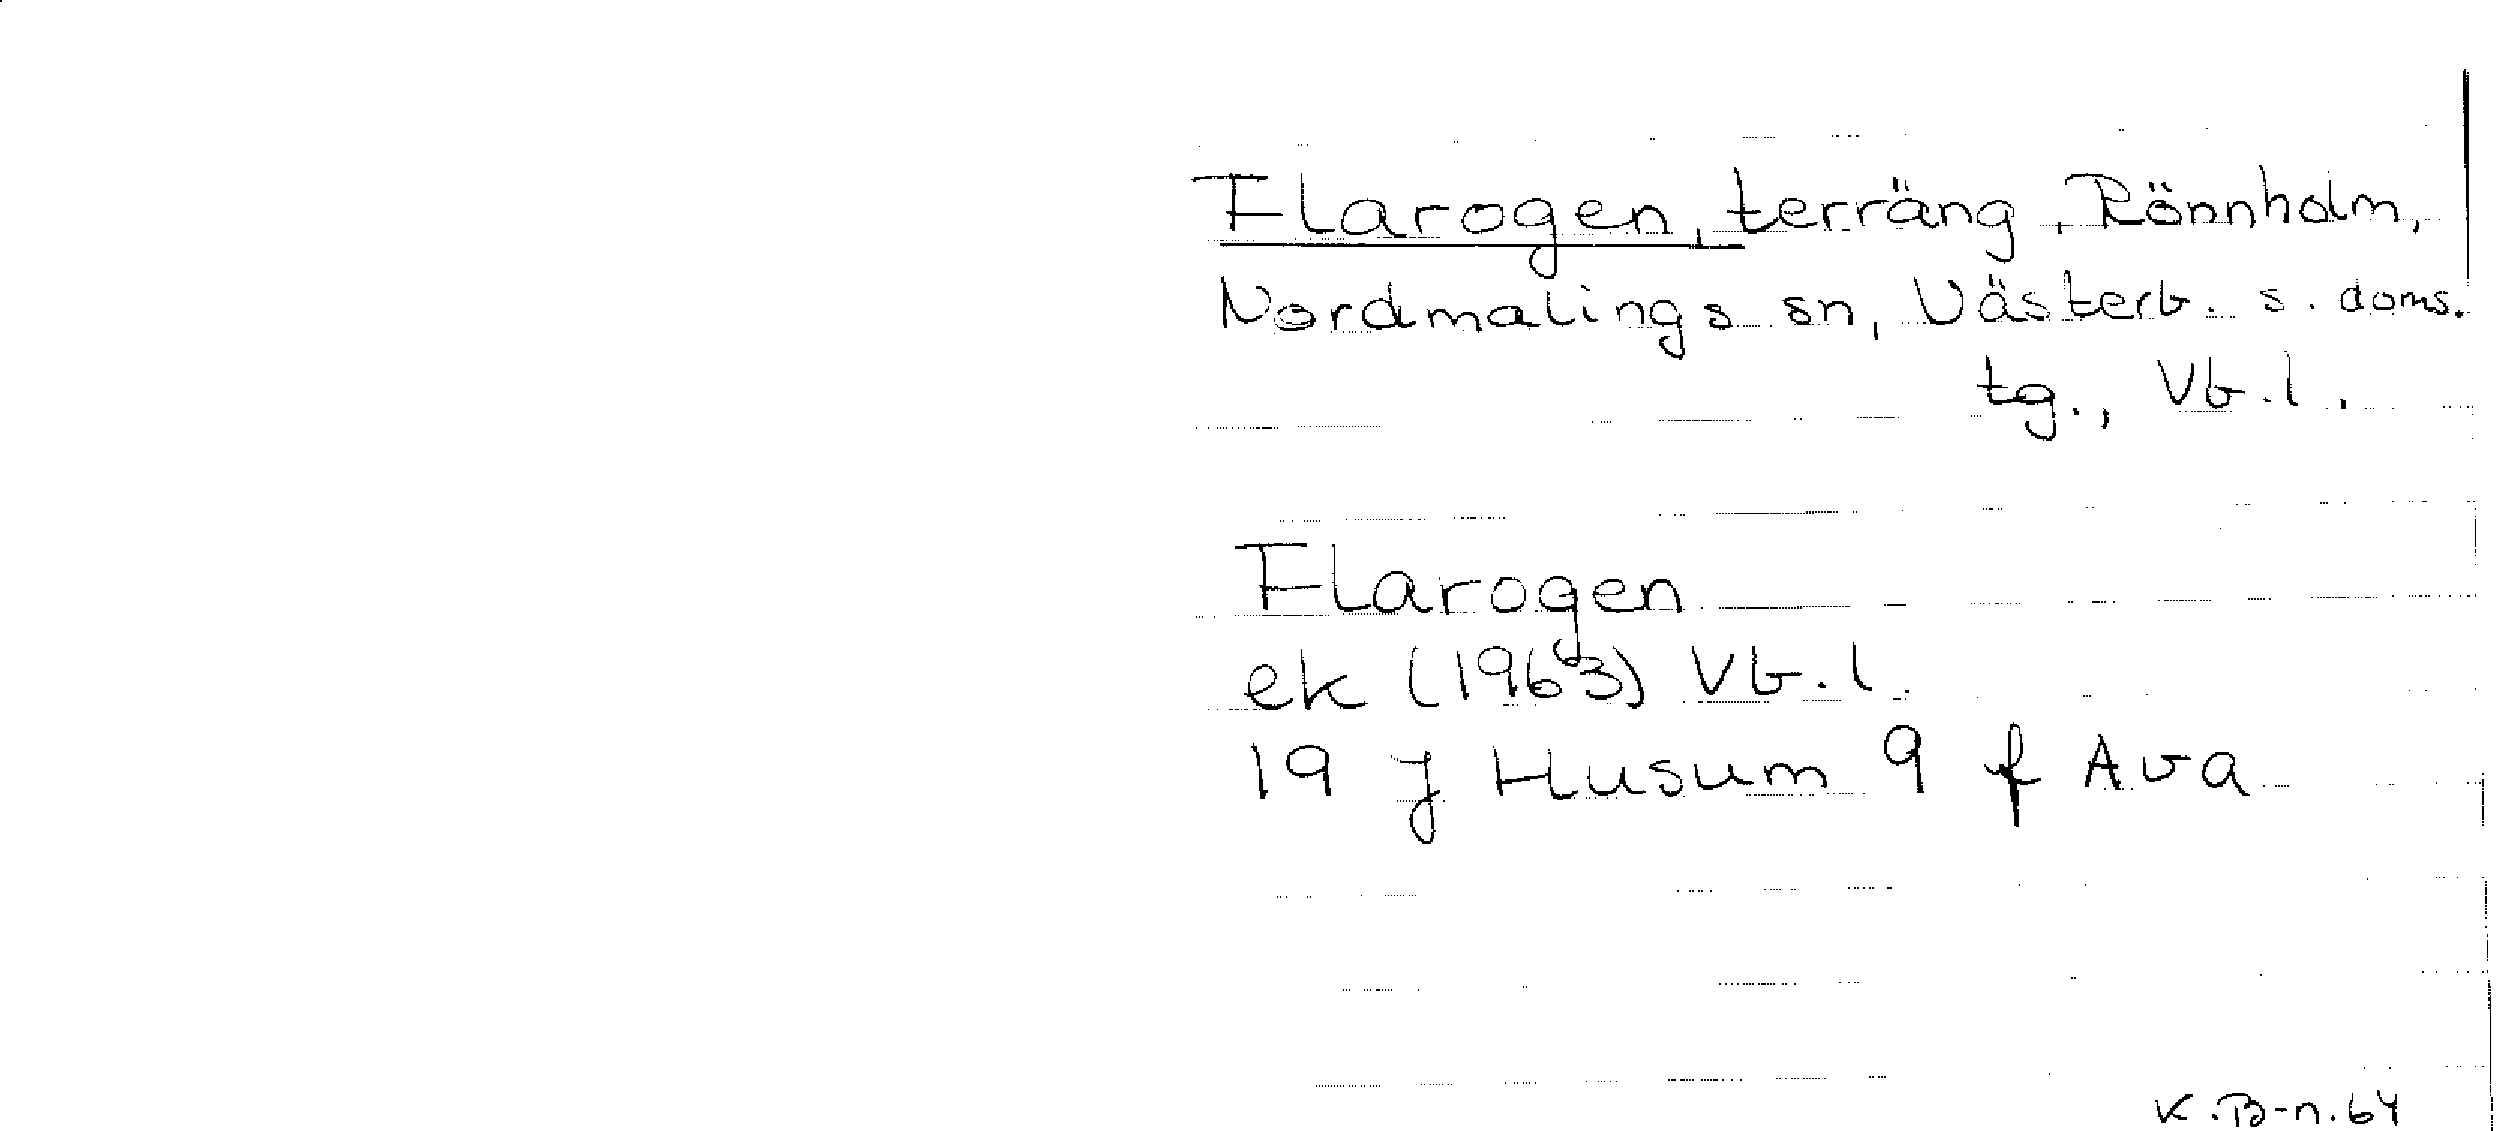 Flarogen, terräng, Rönnholm,
Nordmalings sn, Västerb. s. doms.
tg., Vb.l.
Flarogen
ek (1963) Vb.l.
19 J Husum 9 f Ava
K.B-n.64